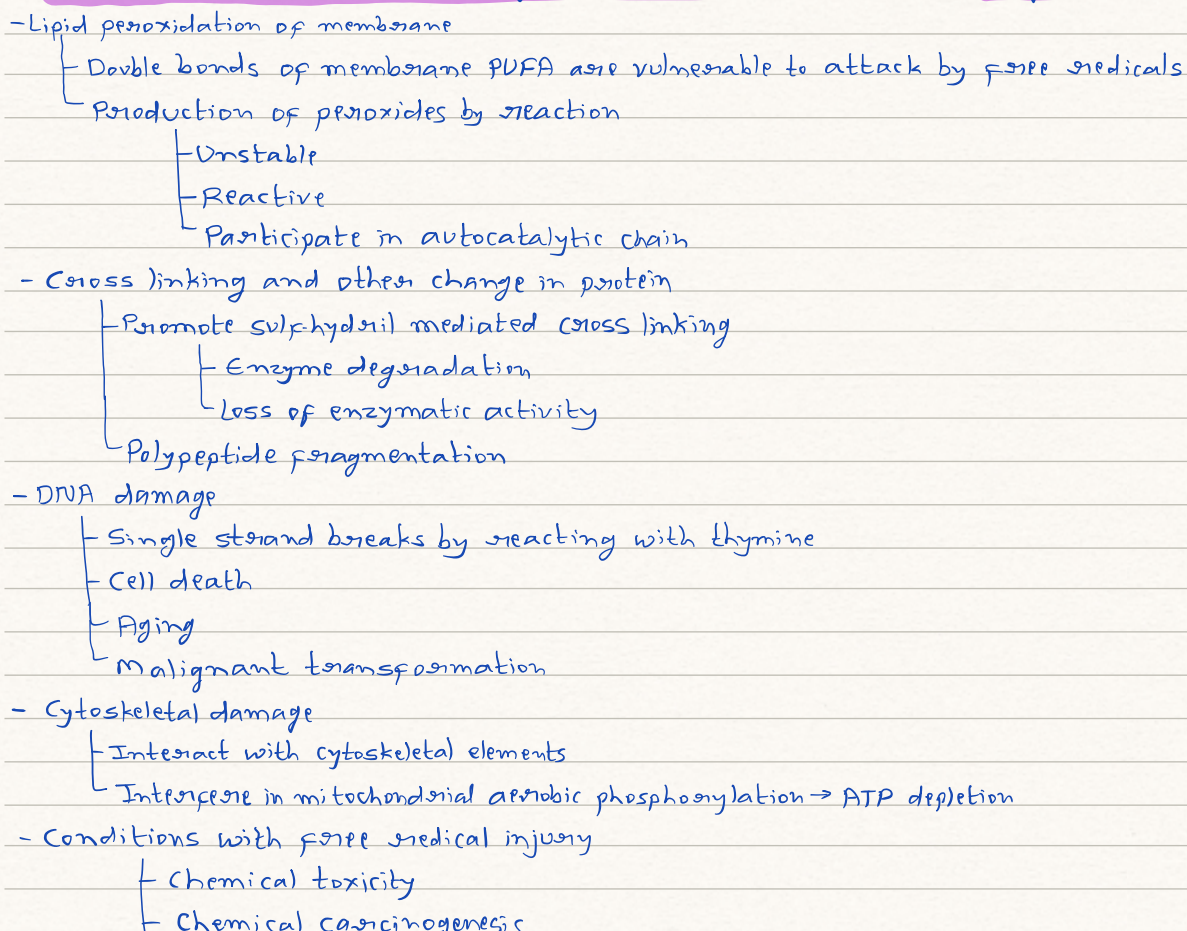 -Lipid peroxidation of membrane
Double bonds of membrane PUFA are vulnerable to attack by free redicals
Production of peroxides by reaction
Unstable
Reactive
Participate in autocatalytic chain
- Cross linking and other change in protein
Promote sulf-hydril mediated cross linking
Enzyme degradation
Loss of enzymatic activity
Polypeptide fragmentation
- DNA damage
Single strand breaks by reacting with thymine
Cell death
Aging
Malignant transformation
- Cytoskeletal damage
Interact with cytoskeletal elements
Interfere in mitochondrial aerobic phosphorylation → ATP depletion
- Conditions with free redical injury
Chemical toxicity
Chemical carcinogenesis